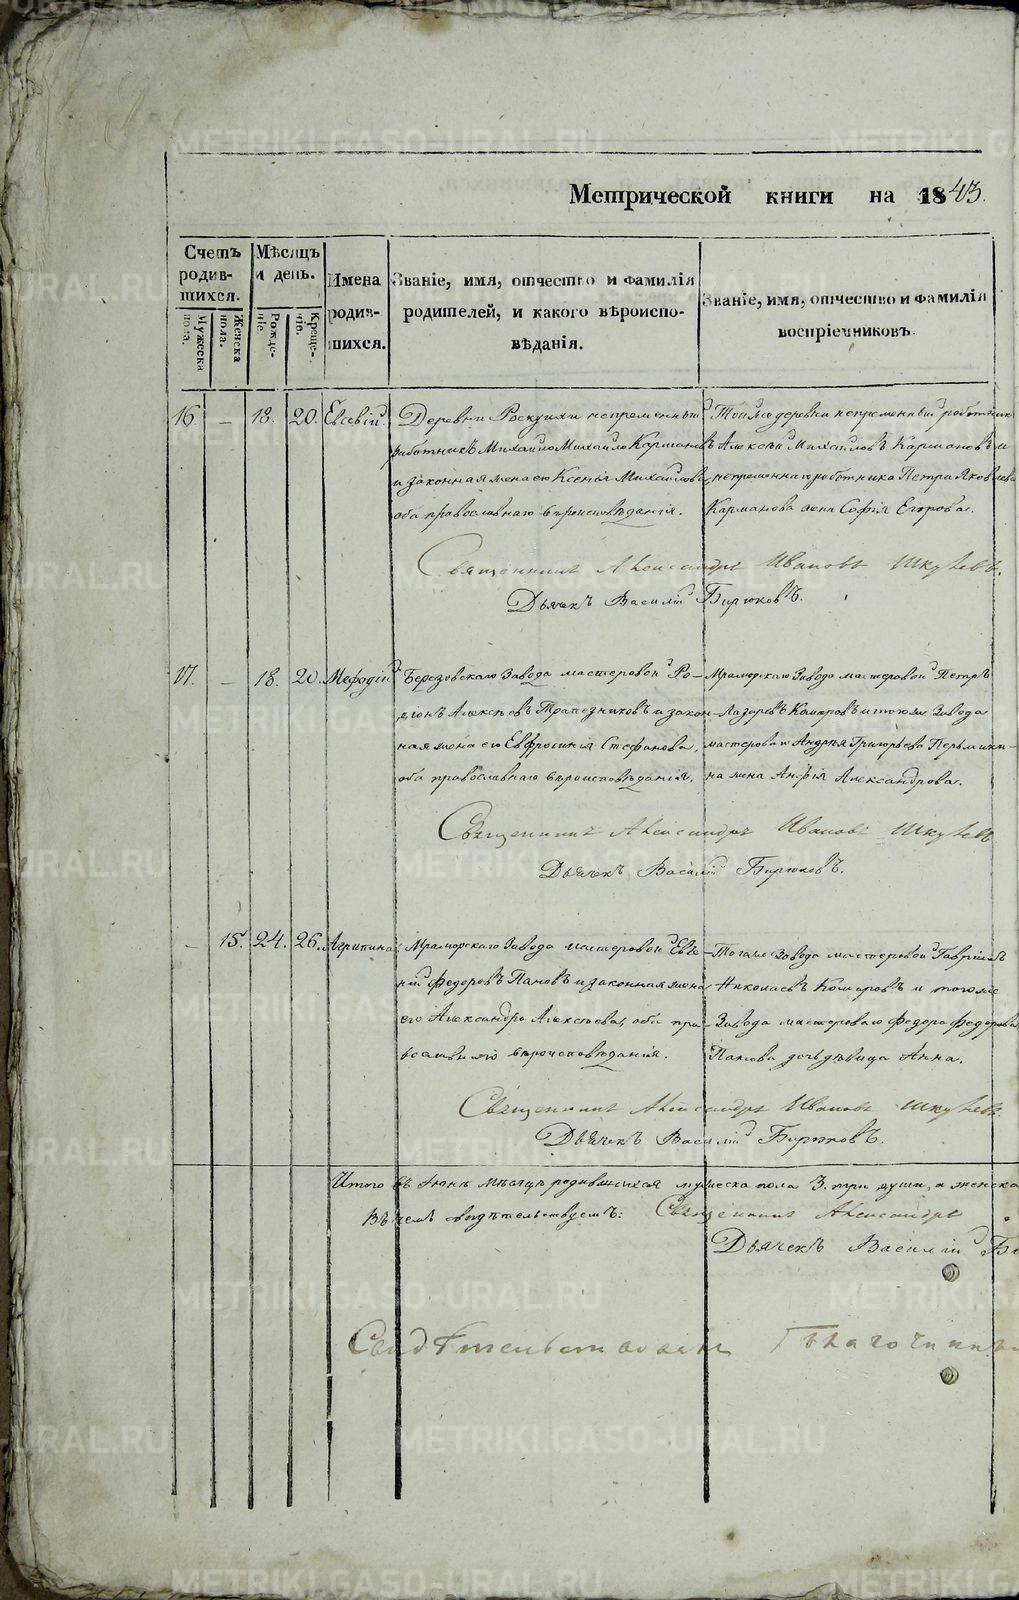 Метрической книги на 1843.
Счетъ родившихся. Мѣсяцъ и день. Имена родившихся. Званіе, имя, отчество и фамилія родителей, и какого вѣроисповѣданія. Званіе, имя, отчество и фамилія воспріемниковъ.
Мужеска пола. Женска пола. Рожденіе. Крещеніе.
16. — 18. 20. Евсевій. Деревни непремѣнный Тойже деревни непремѣнный работникъ
работникъ Михайло Михайловъ Кармановъ Алексѣй Михайловъ Кармановъ и
и законная жена его Ксенія Михайлова, непремѣннаго работника Петра Яковлева
оба православнаго вѣроисповѣданія. Карманова жена Софія Егорова.
Священникъ Александръ Ивановъ
Дьячекъ Василій Бирюковъ.
17. — 18. 20. Мефодій. Березовскаго Завода мастеровой Ро- Мраморскаго Завода мастеровой Петръ
діонъ Алексѣевъ Трапезниковъ и закон- Лазаревъ Комаровъ и тогоже Завода
ная жена его Евфросинія Стефанова, мастероваго Андрея Григорьева Пермики-
оба православнаго вѣроисповѣданія. на жена Анфія Александрова.
Священникъ Александръ Ивановъ
Дьячекъ Василій Бирюковъ.
— 15. 24. 26. Агрипина. Мраморскаго Завода мастеровой Евге- Тогоже Завода мастеровой Гавріилъ
ній Федоровъ Пановъ и законная жена Николаевъ Комаровъ и тогоже
его Александра Алексѣева, оба пра- Завода мастероваго Федора Федорова
вославнаго вѣроисповѣданія. Панова дочь дѣвица Анна.
Священникъ Александръ Ивановъ
Дьячекъ Василій Бирюковъ.
Итого въ Іюнѣ мѣсяцѣ родившихся мужеска пола 3. три души, а женска
Въ чемъ свидѣтельствуемъ: Священникъ Александръ
Дьячекъ Василій
Благочинный
METRIKI.GASO-URAL.RU